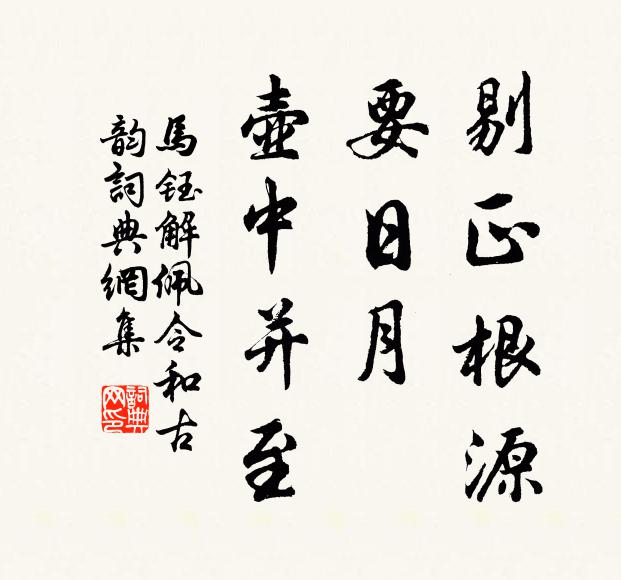 剔正根源
要日月
壺中并至
馬鈺解佩令和古
韵詞典網集
詞典
网印